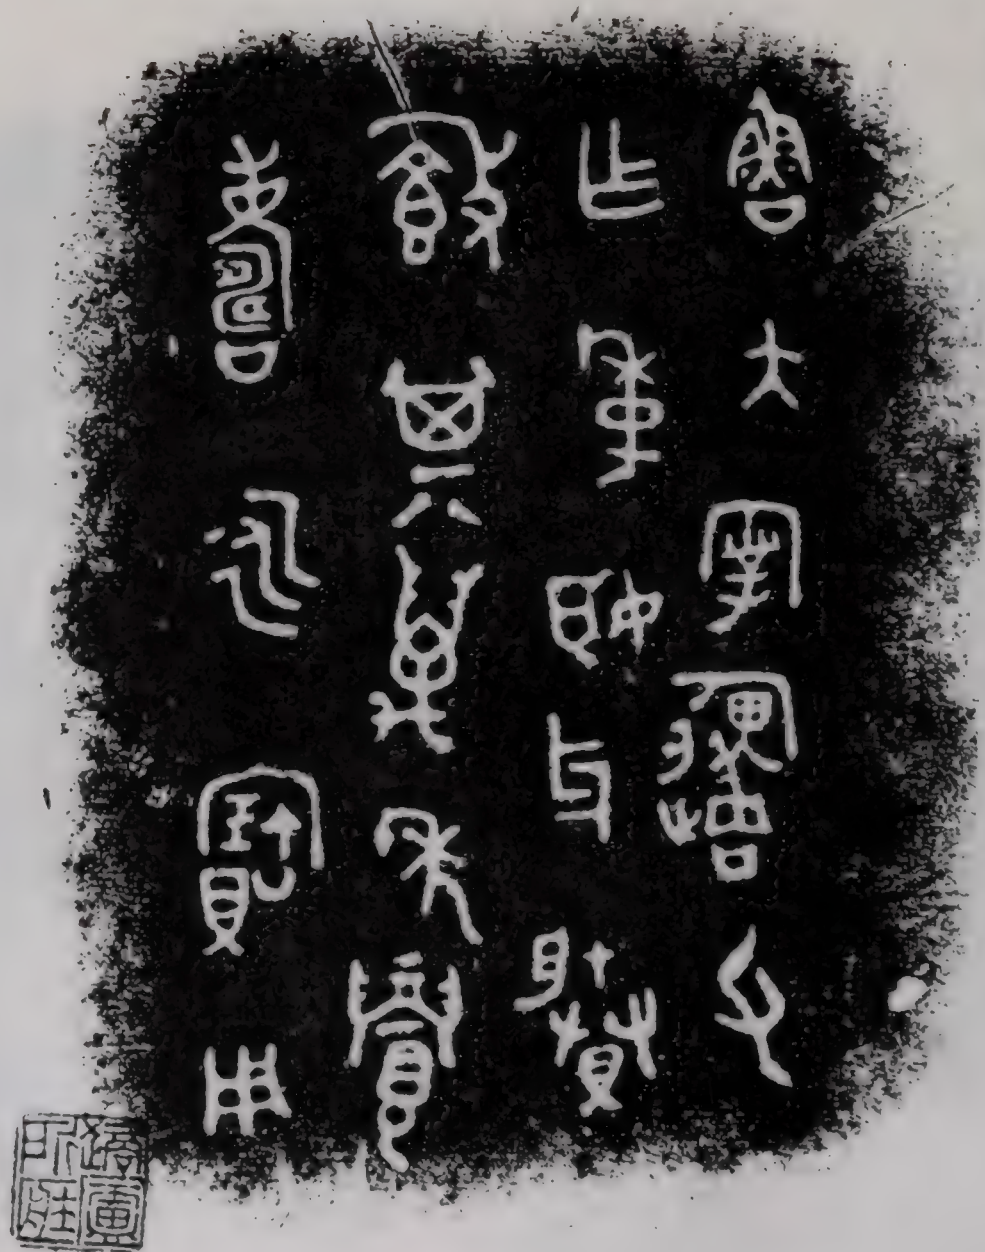 魯大宰邍父
乍季姬牙媵
𣪘其萬年眉
壽永寶用